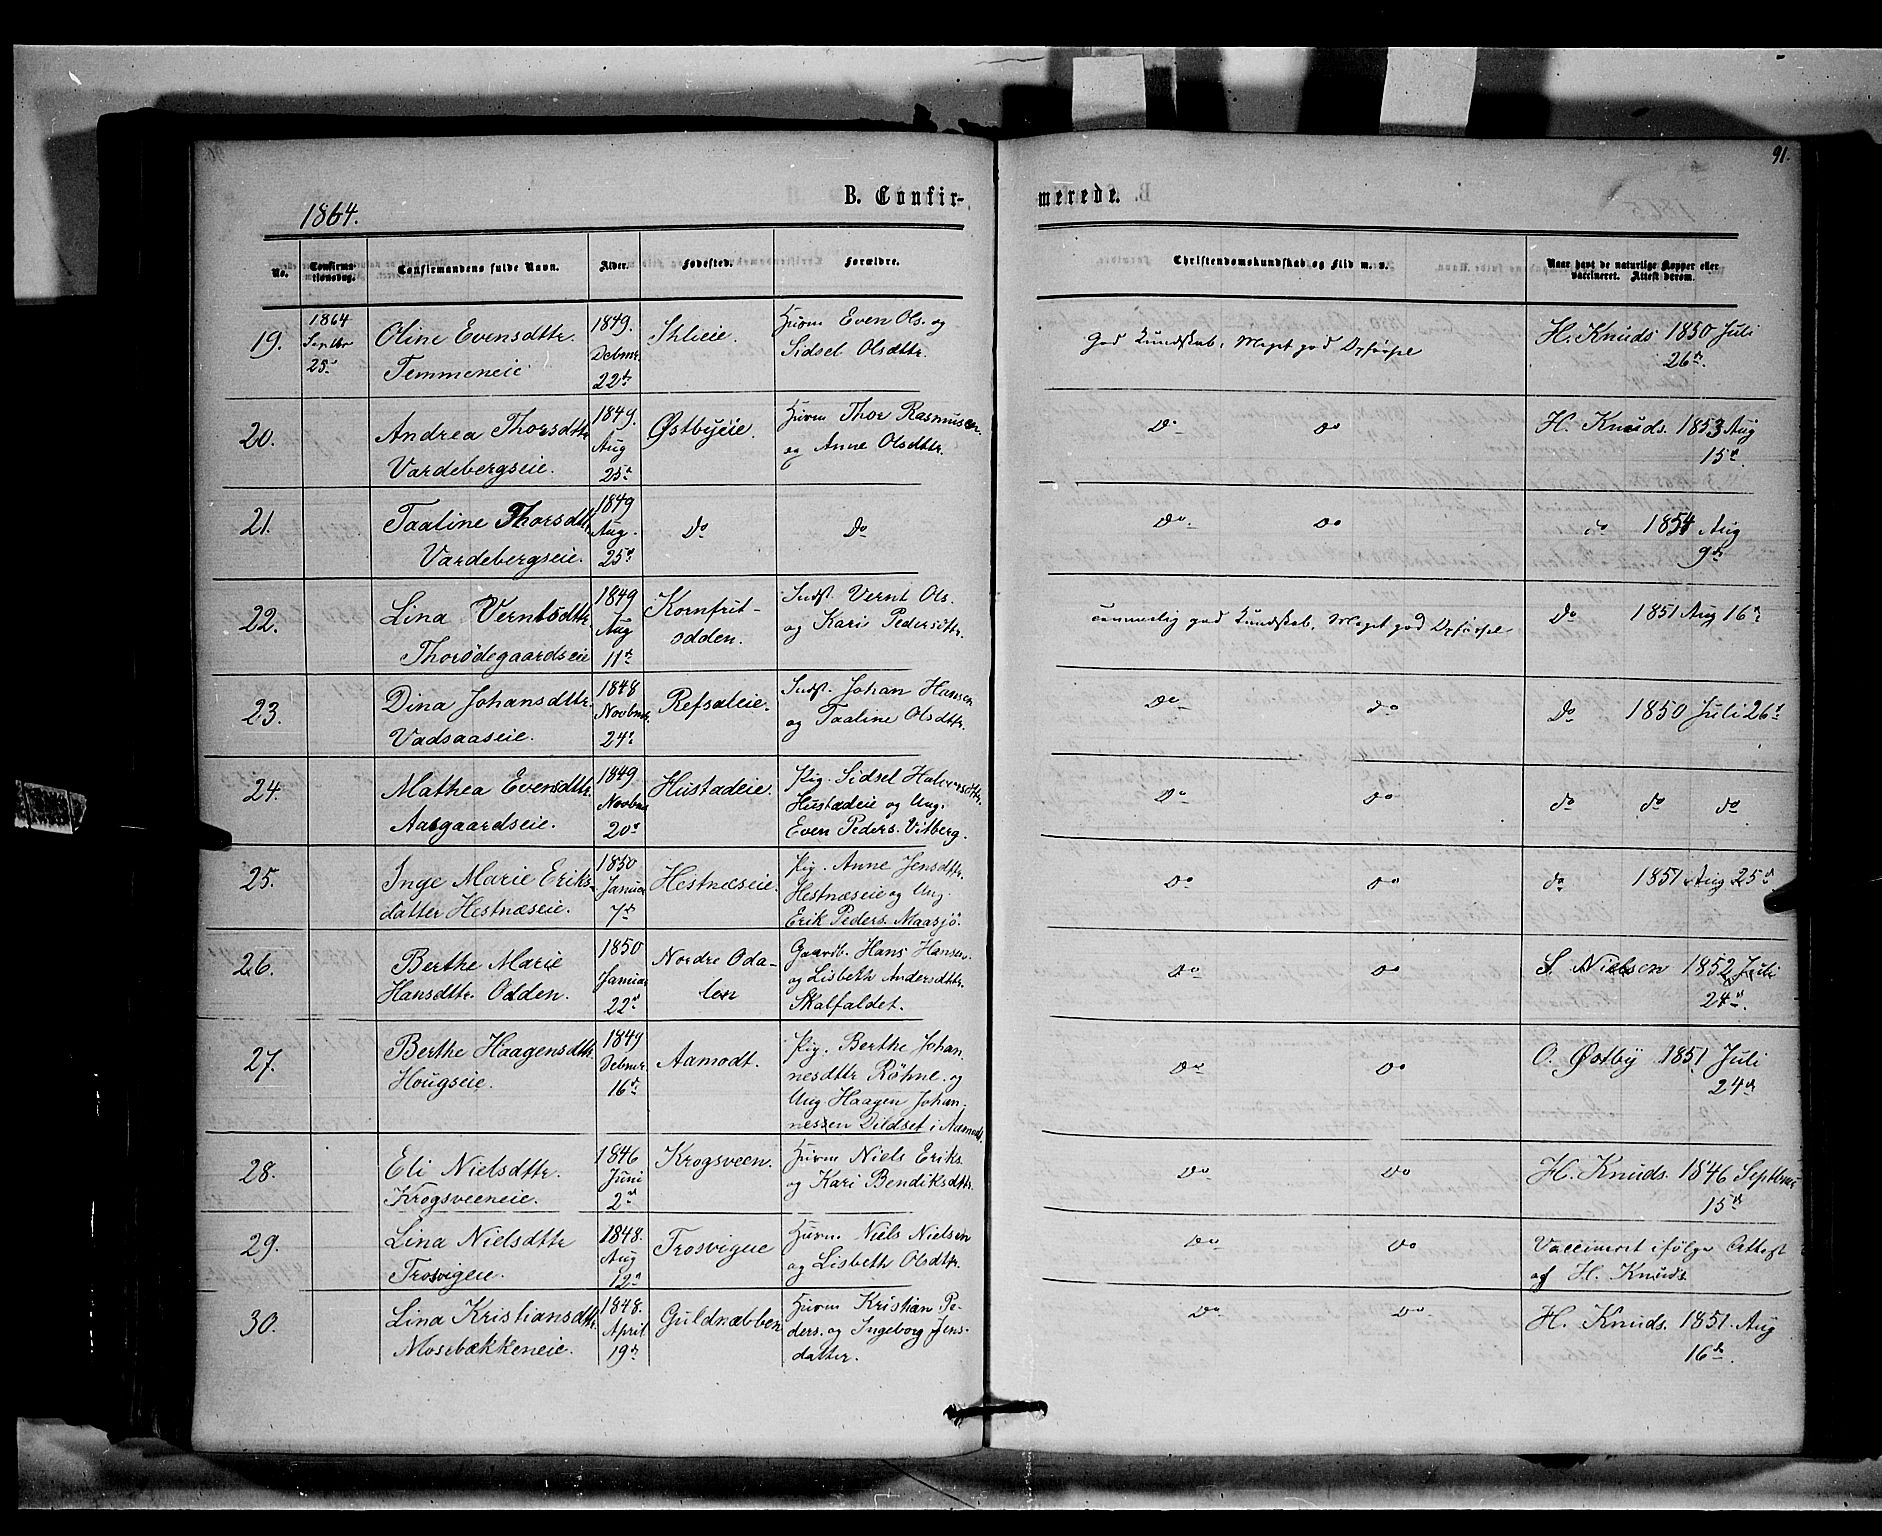 91.
1864.
B. Confir-
merede.
No.
Confirma-
tionsdag.
Confirmandens fulde Navn.
Alder.
Fødested.
Forældre.
Christendomskundskab og Flid m. v.
Naar havt de naturlige Kopper eller
vaccineret. Attest derom.
19.
1864
Septbr
25
Oline Evensdttr.
Temmeneie
1849.
Debmr.
22
Huvm Even Ols. og
Sidsel Olsdttr.
God Kundskab, Meget god Opførsel
H. Knuds 1850 Juli
26
20.
Andrea Thorsdttr
Vardebergseie.
1849.
Aug
25
Østbyeie.
Huvm Thor Rasmusen.
og Anne Olsdttr.
Do Do
H. Knuds. 1853 Aug
15
21.
Taaline Thorsdttr
Vardebergseie.
1849
Aug.
25
Do
Do
Do Do
do 1854 Aug
9
22.
Lina Verntsdttr
Thorsdegaardseie
1849
Aug
11
Kornfrit-
odden.
Indst. Vernt Ols.
og Kari Pedersdttr.
temmelig god Kundskab, Meget god Opførsel
Do 1851 Aug 16
23.
Dina Johansdttr.
Vadsaaseie.
1848
Novbmr.
24
Refsaleie.
Indst. Johan Hansen
og Taaline Olsdttr.
Do Do
Do 1850 Juli 26
24.
Mathea Evensdttr
Aasgaardseie.
1849
Novbmr
20
Hustadeie.
Pig. Sidsel Halvorsdttr.
Hustadeie og Ung.
Even Peders. Vitberg.
Do Do
do do do
25.
Inge Marie Eriks-
datter Hestnæseie.
1850
Januar
7
Hestnæseie.
Pig. Anne Jensdttr.
Hestnæseie og Ung
Erik Peders. Maasjö.
Do Do
do 1851 Aug 25
26.
Berthe Marie
Hansdttr. Odden.
1850
Januar
22
Nordre Oda-
len
Gaardb. Hans Hansen.
og Lisbeth Andersdttr.
Skalfaldet.
Do Do
S. Nielsen 1852 Juli
24
27.
Berthe Haagensdttr.
Hougseie.
1849
Debmr.
16
Aamodt.
Pig. Berthe Johan-
nesdttr Röhne. og
Ung Haagen Johan-
nessen Dildset i Aamodt.
Do Do
O. Østby 1851 Juli
24
28.
Eli Nielsdttr.
Krogsveeneie.
1846
Juni
2
Krogsveen.
Huvm Niels Eriks.
og Kari Bendiksdttr.
Do Do
H. Knuds. 1846 Septbmr
15
29.
Lina Nielsdttr
Trosvigeie.
1848.
Aug
12
Trosvigeie
Huvm Niels Nielsen
og Lisbeth Olsdttr.
Do Do
Vaccineret ifölge Attest
af H. Knuds
30.
Lina Kristiansdttr.
Mosebækkeneie.
1848.
April
19
Guldnæbben
Huvm Kristian Pe-
ders. og Ingeborg Jens-
datter.
Do Do
H. Knuds. 1851. Aug
16